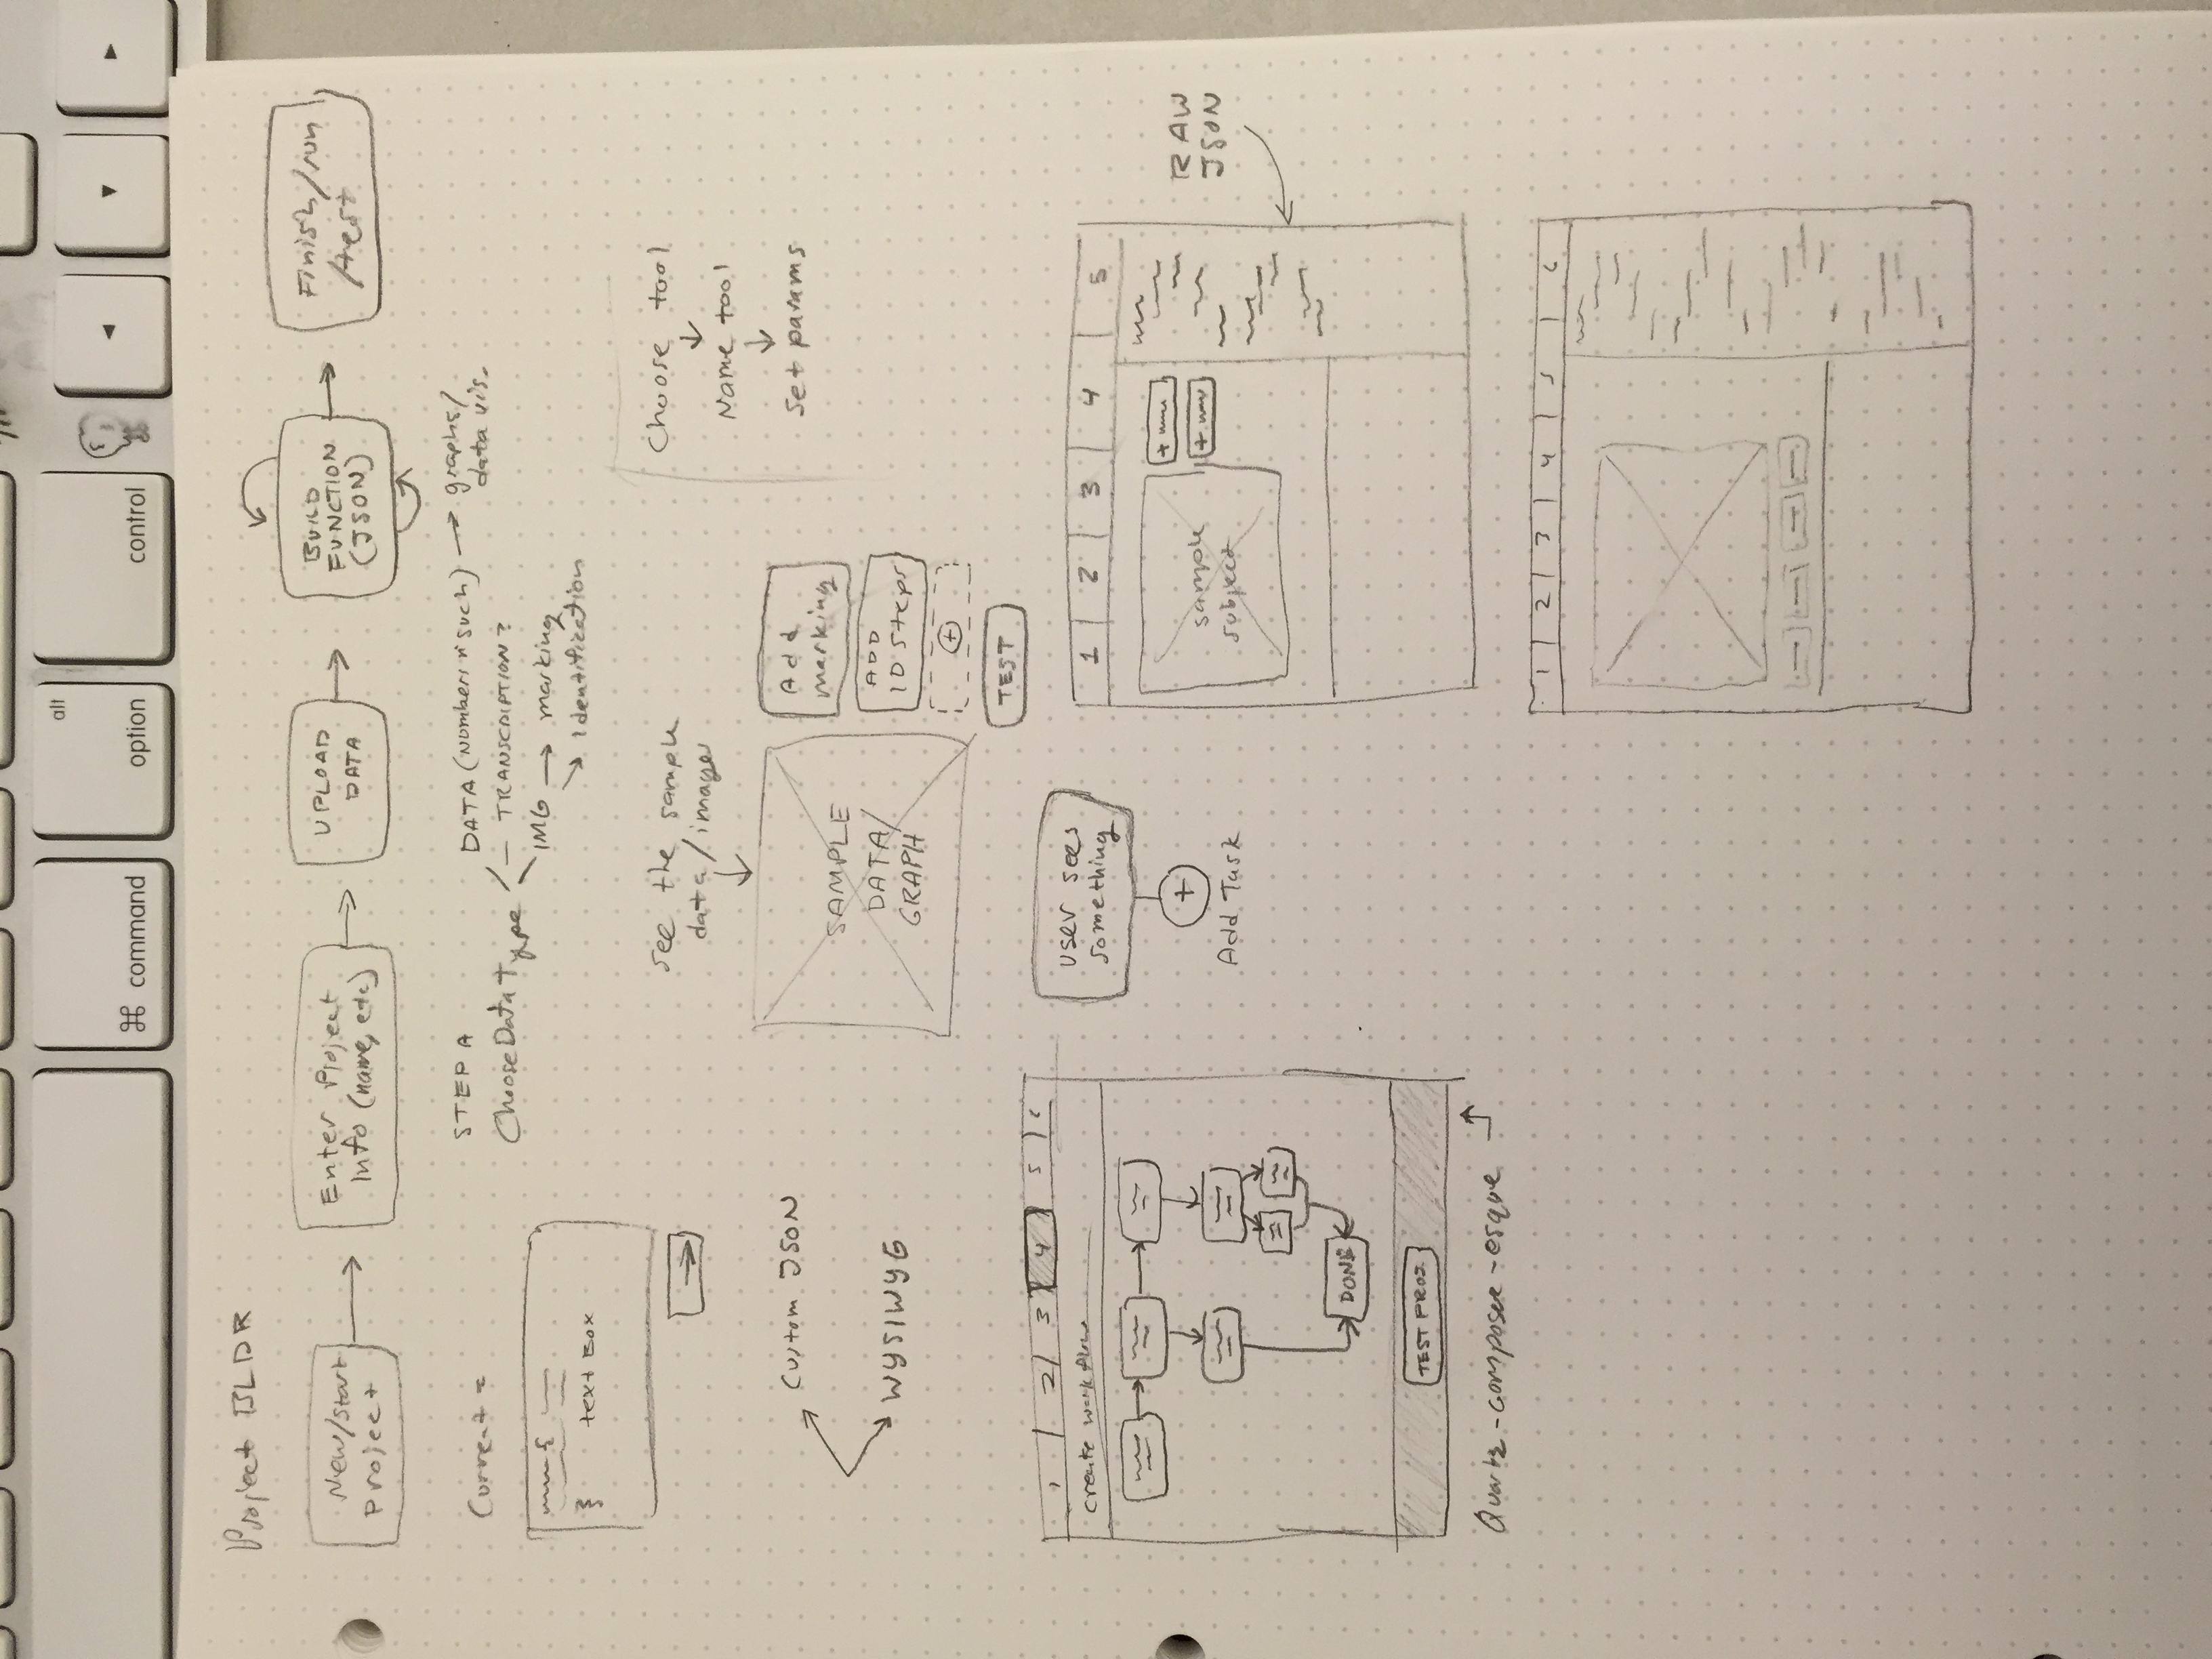 ⌘ command
alt
option
control
◄
▼
►
Project BLDR
New/start
project
Enter Project
Info (name, etc)
UPLOAD
DATA
BUILD
FUNCTION
(JSON)
Finish/run
/test
Current =
text Box
STEP A
Choose Data Type
DATA (Numbers n' such) → graphs/
data vis.
— TRANSCRIPTION?
IMG → marking
→ Identification
see the sample
data/images
Choose tool
Name tool
Set params
Custom JSON
WYSIWYG
SAMPLE
DATA/
GRAPH
Add
marking
ADD
ID Steps
+
TEST
1 2 3 4 5 6
create workflow
DONE
TEST PROJ.
Quartz-composer-esque
user sees
something
+
Add Task
1 2 3 4 5
sample
subject
+
+
RAW
JSON
1 2 3 4 5 6